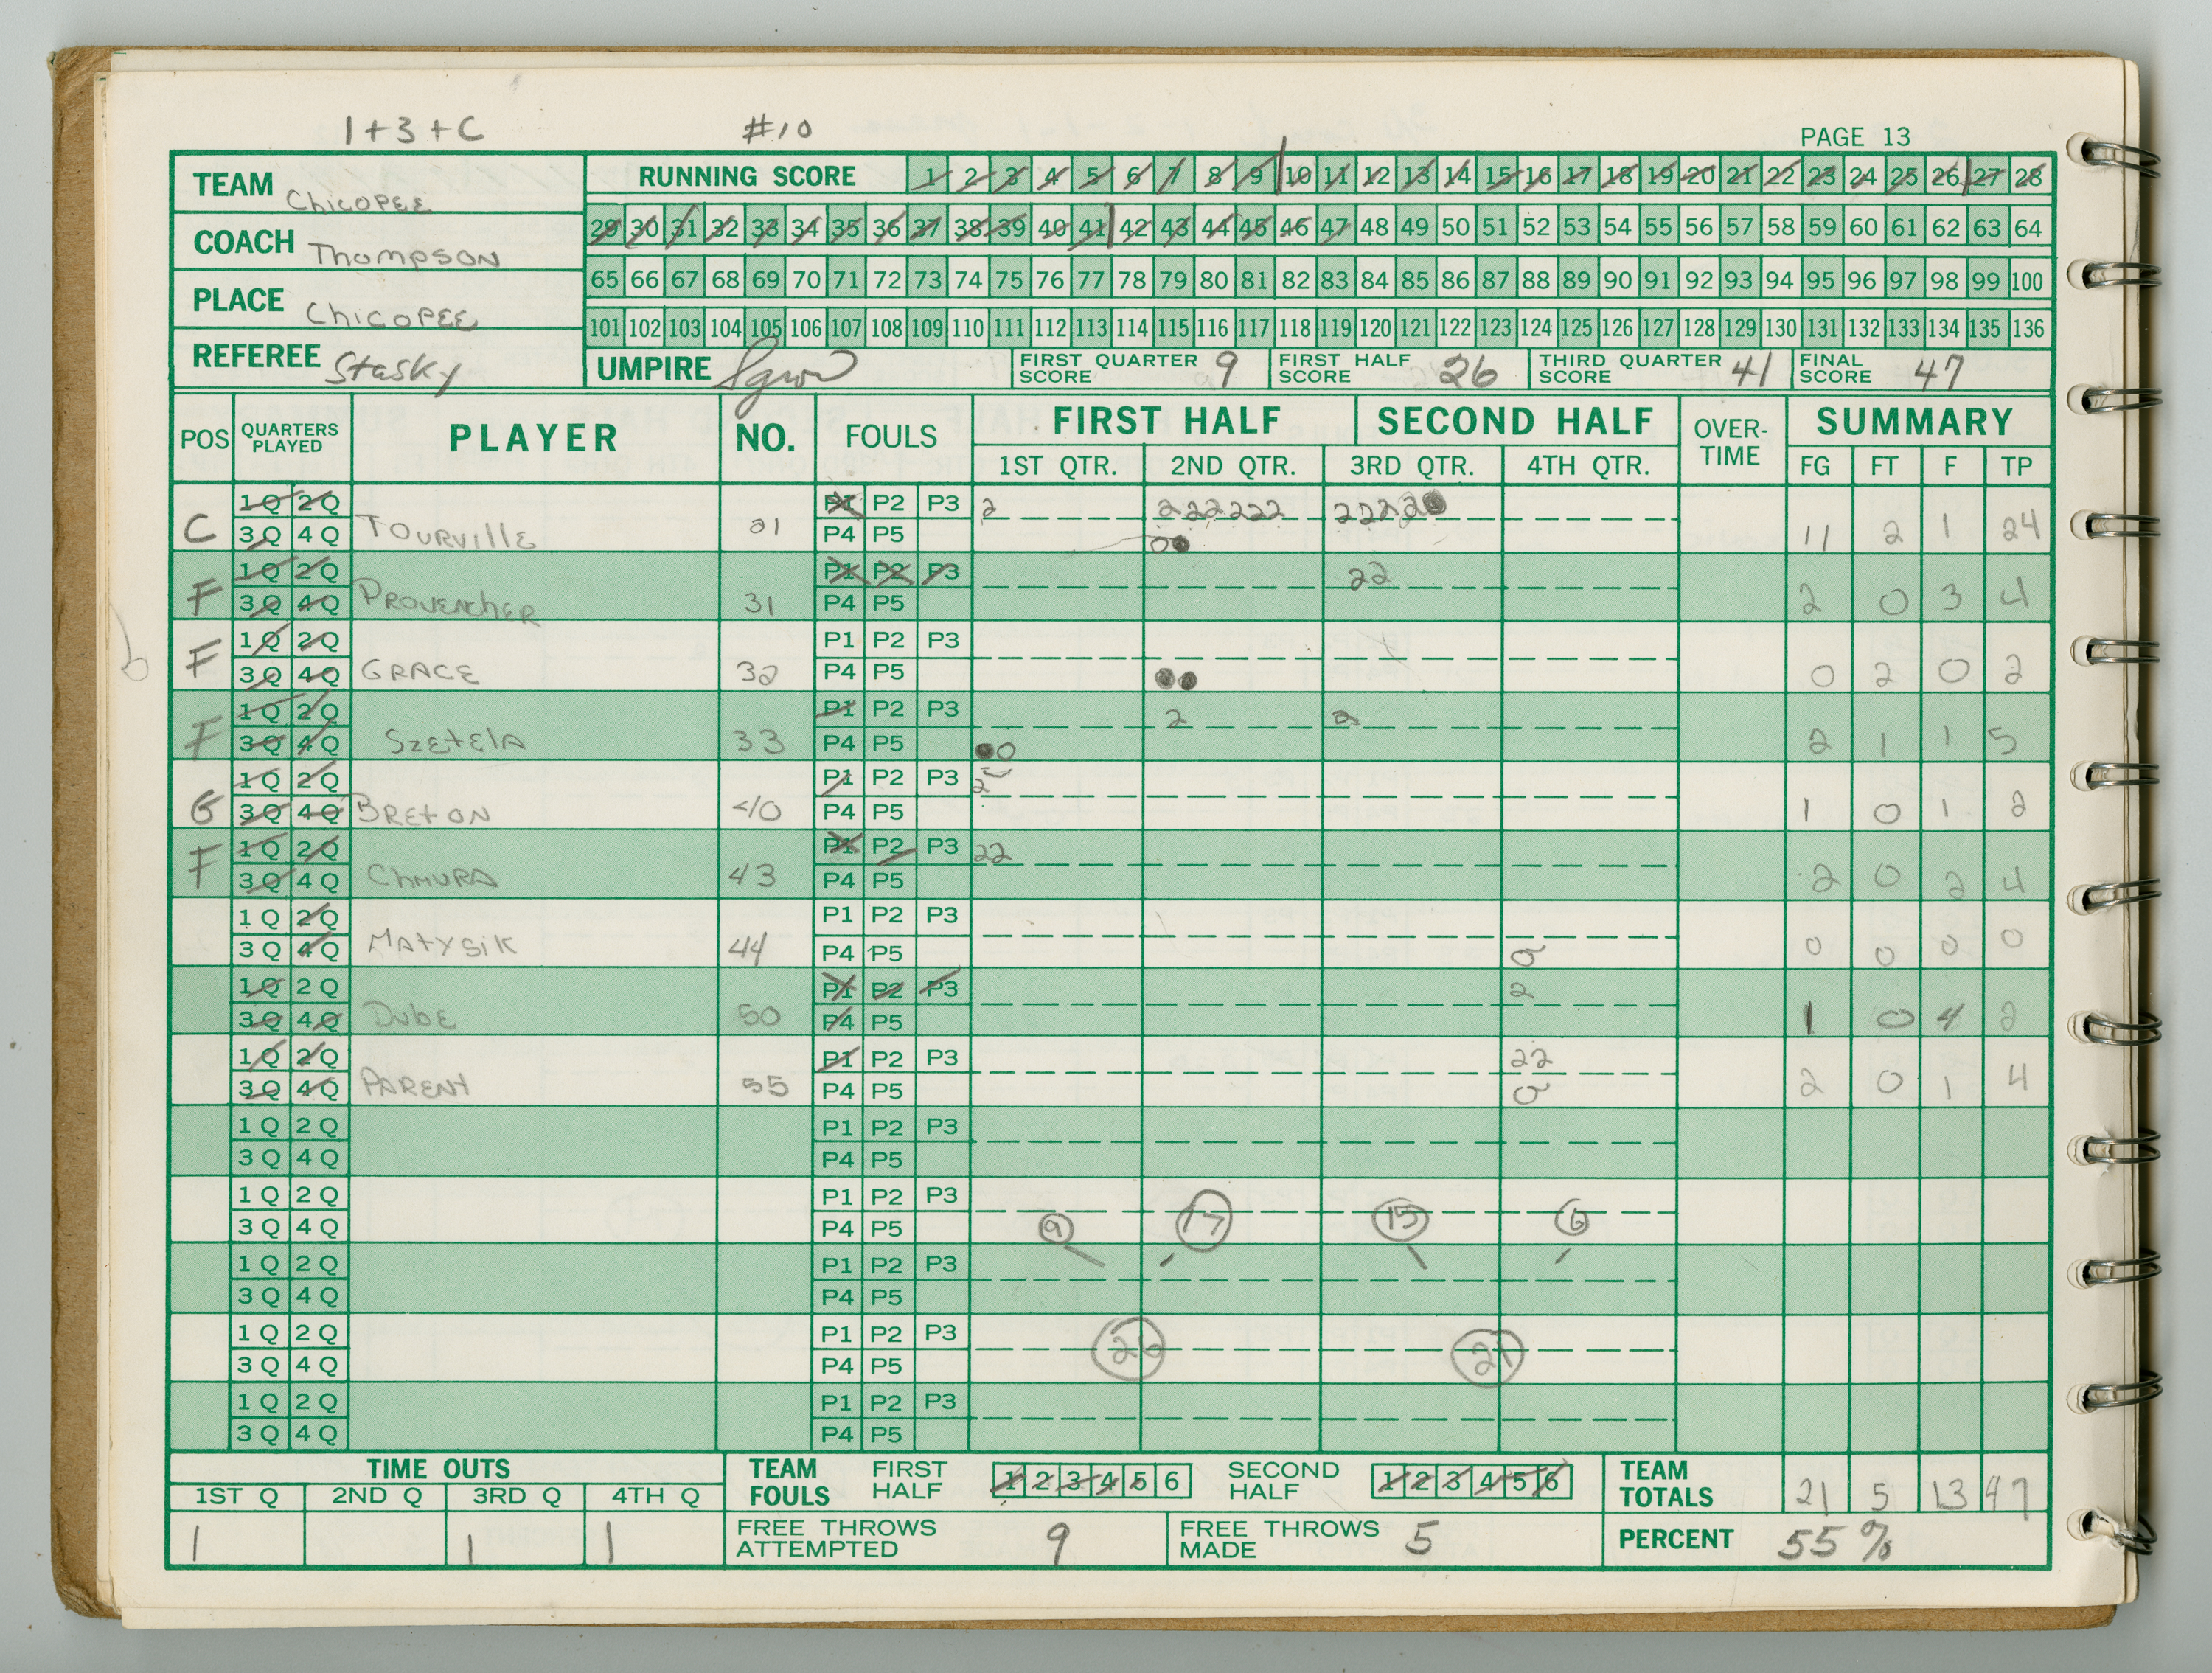 1+3+C #10
PAGE 13
TEAM Chicopee
RUNNING SCORE 1 2 3 4 5 6 7 8 9 10 11 12 13 14 15 16 17 18 19 20 21 22 23 24 25 26 27 28
29 30 31 32 33 34 35 36 37 38 39 40 41 42 43 44 45 46 47 48 49 50 51 52 53 54 55 56 57 58 59 60 61 62 63 64
COACH Thompson
65 66 67 68 69 70 71 72 73 74 75 76 77 78 79 80 81 82 83 84 85 86 87 88 89 90 91 92 93 94 95 96 97 98 99 100
PLACE Chicopee
101 102 103 104 105 106 107 108 109 110 111 112 113 114 115 116 117 118 119 120 121 122 123 124 125 126 127 128 129 130 131 132 133 134 135 136
REFEREE Stasky
UMPIRE
FIRST QUARTER SCORE 9
FIRST HALF SCORE 26
THIRD QUARTER SCORE 41
FINAL SCORE 47
POS QUARTERS PLAYED PLAYER NO. FOULS FIRST HALF SECOND HALF OVER-TIME SUMMARY
1ST QTR. 2ND QTR. 3RD QTR. 4TH QTR. FG FT F TP
1Q 2Q P1 P2 P3 2 222222 2222
C 3Q 4Q Tourville 21 P4 P5 11 2 1 24
1Q 2Q P1 P2 P3 22
F 3Q 4Q Provencher 31 P4 P5 2 0 3 4
1Q 2Q P1 P2 P3
F 3Q 4Q Grace 32 P4 P5 0 2 0 2
1Q 2Q P1 P2 P3 2 2
F 3Q 4Q Szetela 33 P4 P5 2 1 1 5
1Q 2Q P1 P2 P3 2
G 3Q 4Q Breton 40 P4 P5 1 0 1 2
1Q 2Q P1 P2 P3 22
F 3Q 4Q Chmura 43 P4 P5 2 0 2 4
1Q 2Q P1 P2 P3
3Q 4Q Matysik 44 P4 P5 0 0 0 0
1Q 2Q P1 P2 P3 2
3Q 4Q Dube 50 P4 P5 1 0 4 2
1Q 2Q P1 P2 P3 22
3Q 4Q Parent 55 P4 P5 2 0 1 4
1Q 2Q P1 P2 P3
3Q 4Q P4 P5
1Q 2Q P1 P2 P3
3Q 4Q P4 P5 9 17 15 6
1Q 2Q P1 P2 P3
3Q 4Q P4 P5
1Q 2Q P1 P2 P3
3Q 4Q P4 P5 26 21
1Q 2Q P1 P2 P3
3Q 4Q P4 P5
TIME OUTS
1ST Q 2ND Q 3RD Q 4TH Q
1 1 1
TEAM FOULS FIRST HALF 1 2 3 4 5 6 SECOND HALF 1 2 3 4 5 6
TEAM TOTALS 21 5 13 47
FREE THROWS ATTEMPTED 9
FREE THROWS MADE 5
PERCENT 55%